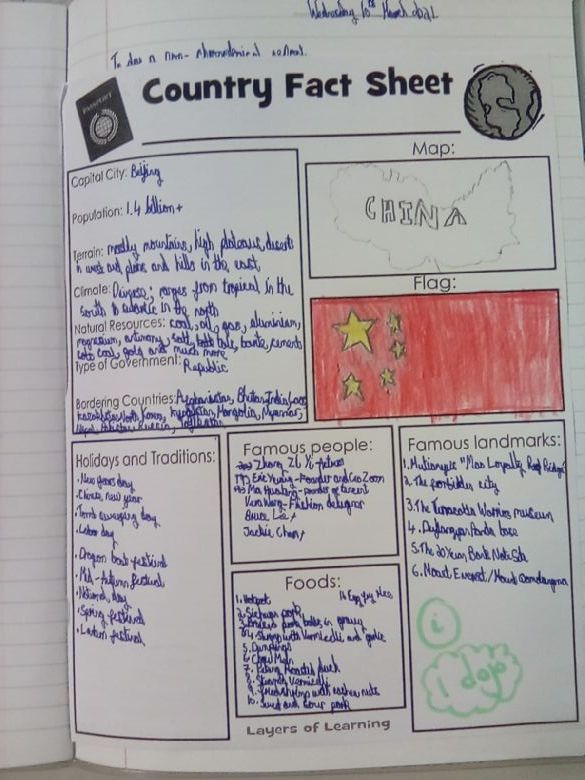 Wednesday 10th March 2021
To do a non-chronological
PASSPORT
Country Fact Sheet
Capital City: Beijing
Population: 1.4 billion +
Terrain: mostly mountains, high plateaus, deserts
in west and plains and hills in the east
Climate: Diverse; ranges from tropical in the
south to subarctic in the north
Natural Resources: coal, oil, gas, aluminium,
magnesium, antimony, salt, talc, barite, cement,
coal, gold and much more
Type of Government: Republic
Bordering Countries: Afghanistan, Bhutan, India, Laos
Kazakhstan, North Korea, Kyrgyzstan, Mongolia, Myanmar,
Nepal, Pakistan, Russia,
Map:
CHINA
Flag:
Holidays and Traditions:
• New years day
• Chinese new year
• Tomb sweeping day
• Labour day
• Dragon boat festival
• Mid-Autumn festival
• National day
• Spring festival
• Lantern festival
Famous people:
Zhang Zi Yi-Actress
Eric Yuan-Founder and Ceo Zoom
Ma Huateng-founder of tencent
Vera Wang-Fashion designer
Bruce Lee
Jackie Chan
Foods:
1. Hotpot 11. Egg fry rice
2. Sichuan pork
3. Braised pork balls in gravy
4. Shrimp with Vermicelli and garlic
5. Dumplings
6. Chow Mein
7. Peking Roasted Duck
8. Steamed Vermicelli
9. Fried shrimp with cashew nuts
10. Sweet and Sour pork
Famous landmarks:
1. Mutianyu
2. The forbidden city
3. The Terracotta Warriors museum
4. Panda base
5. The 20 Yuan Bank Note
6. Mount Everest/Mount
i
1 dojo
Layers of Learning